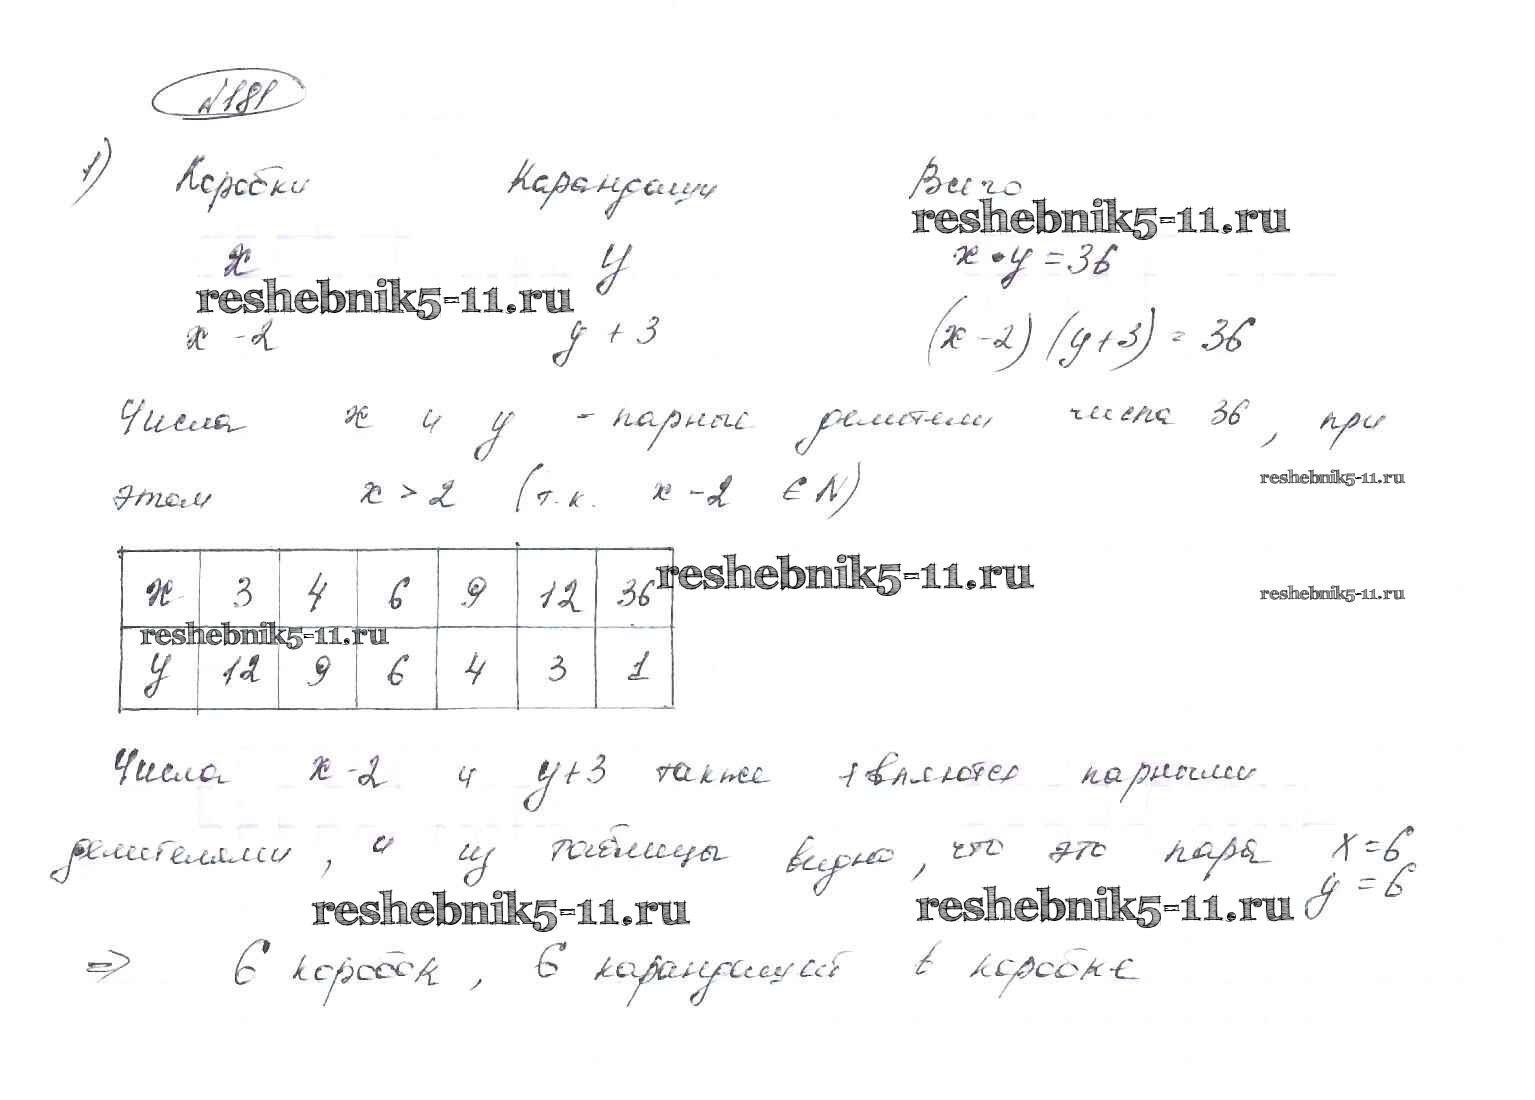 №181
1) Коробки Карандаши Всего
reshebnik5-11.ru
x y x • y = 36
reshebnik5-11.ru
x - 2 y + 3 (x - 2) (y + 3) = 36
Числа x и y - парные делители числа 36, при
этом x > 2 (т.к. x - 2 ∈ N)
reshebnik5-11.ru
reshebnik5-11.ru
x 3 4 6 9 12 36
reshebnik5-11.ru
reshebnik5-11.ru
y 12 9 6 4 3 1
Числа x - 2 и y + 3 также являются парными
делителями, и из таблицы видно, что это пара x = 6
y = 6
reshebnik5-11.ru reshebnik5-11.ru
=> 6 коробок, 6 карандашей в коробке